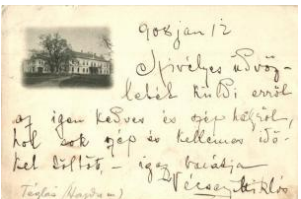 908 jan 12
Szivélyes üdvöz-
letét küldi erről
az igen kedves és szép helyről,
hol sok szép és kellemes idő-
ket töltött, – igaz barátja
Vécsey Miklós
Téglás (Hajdu m)